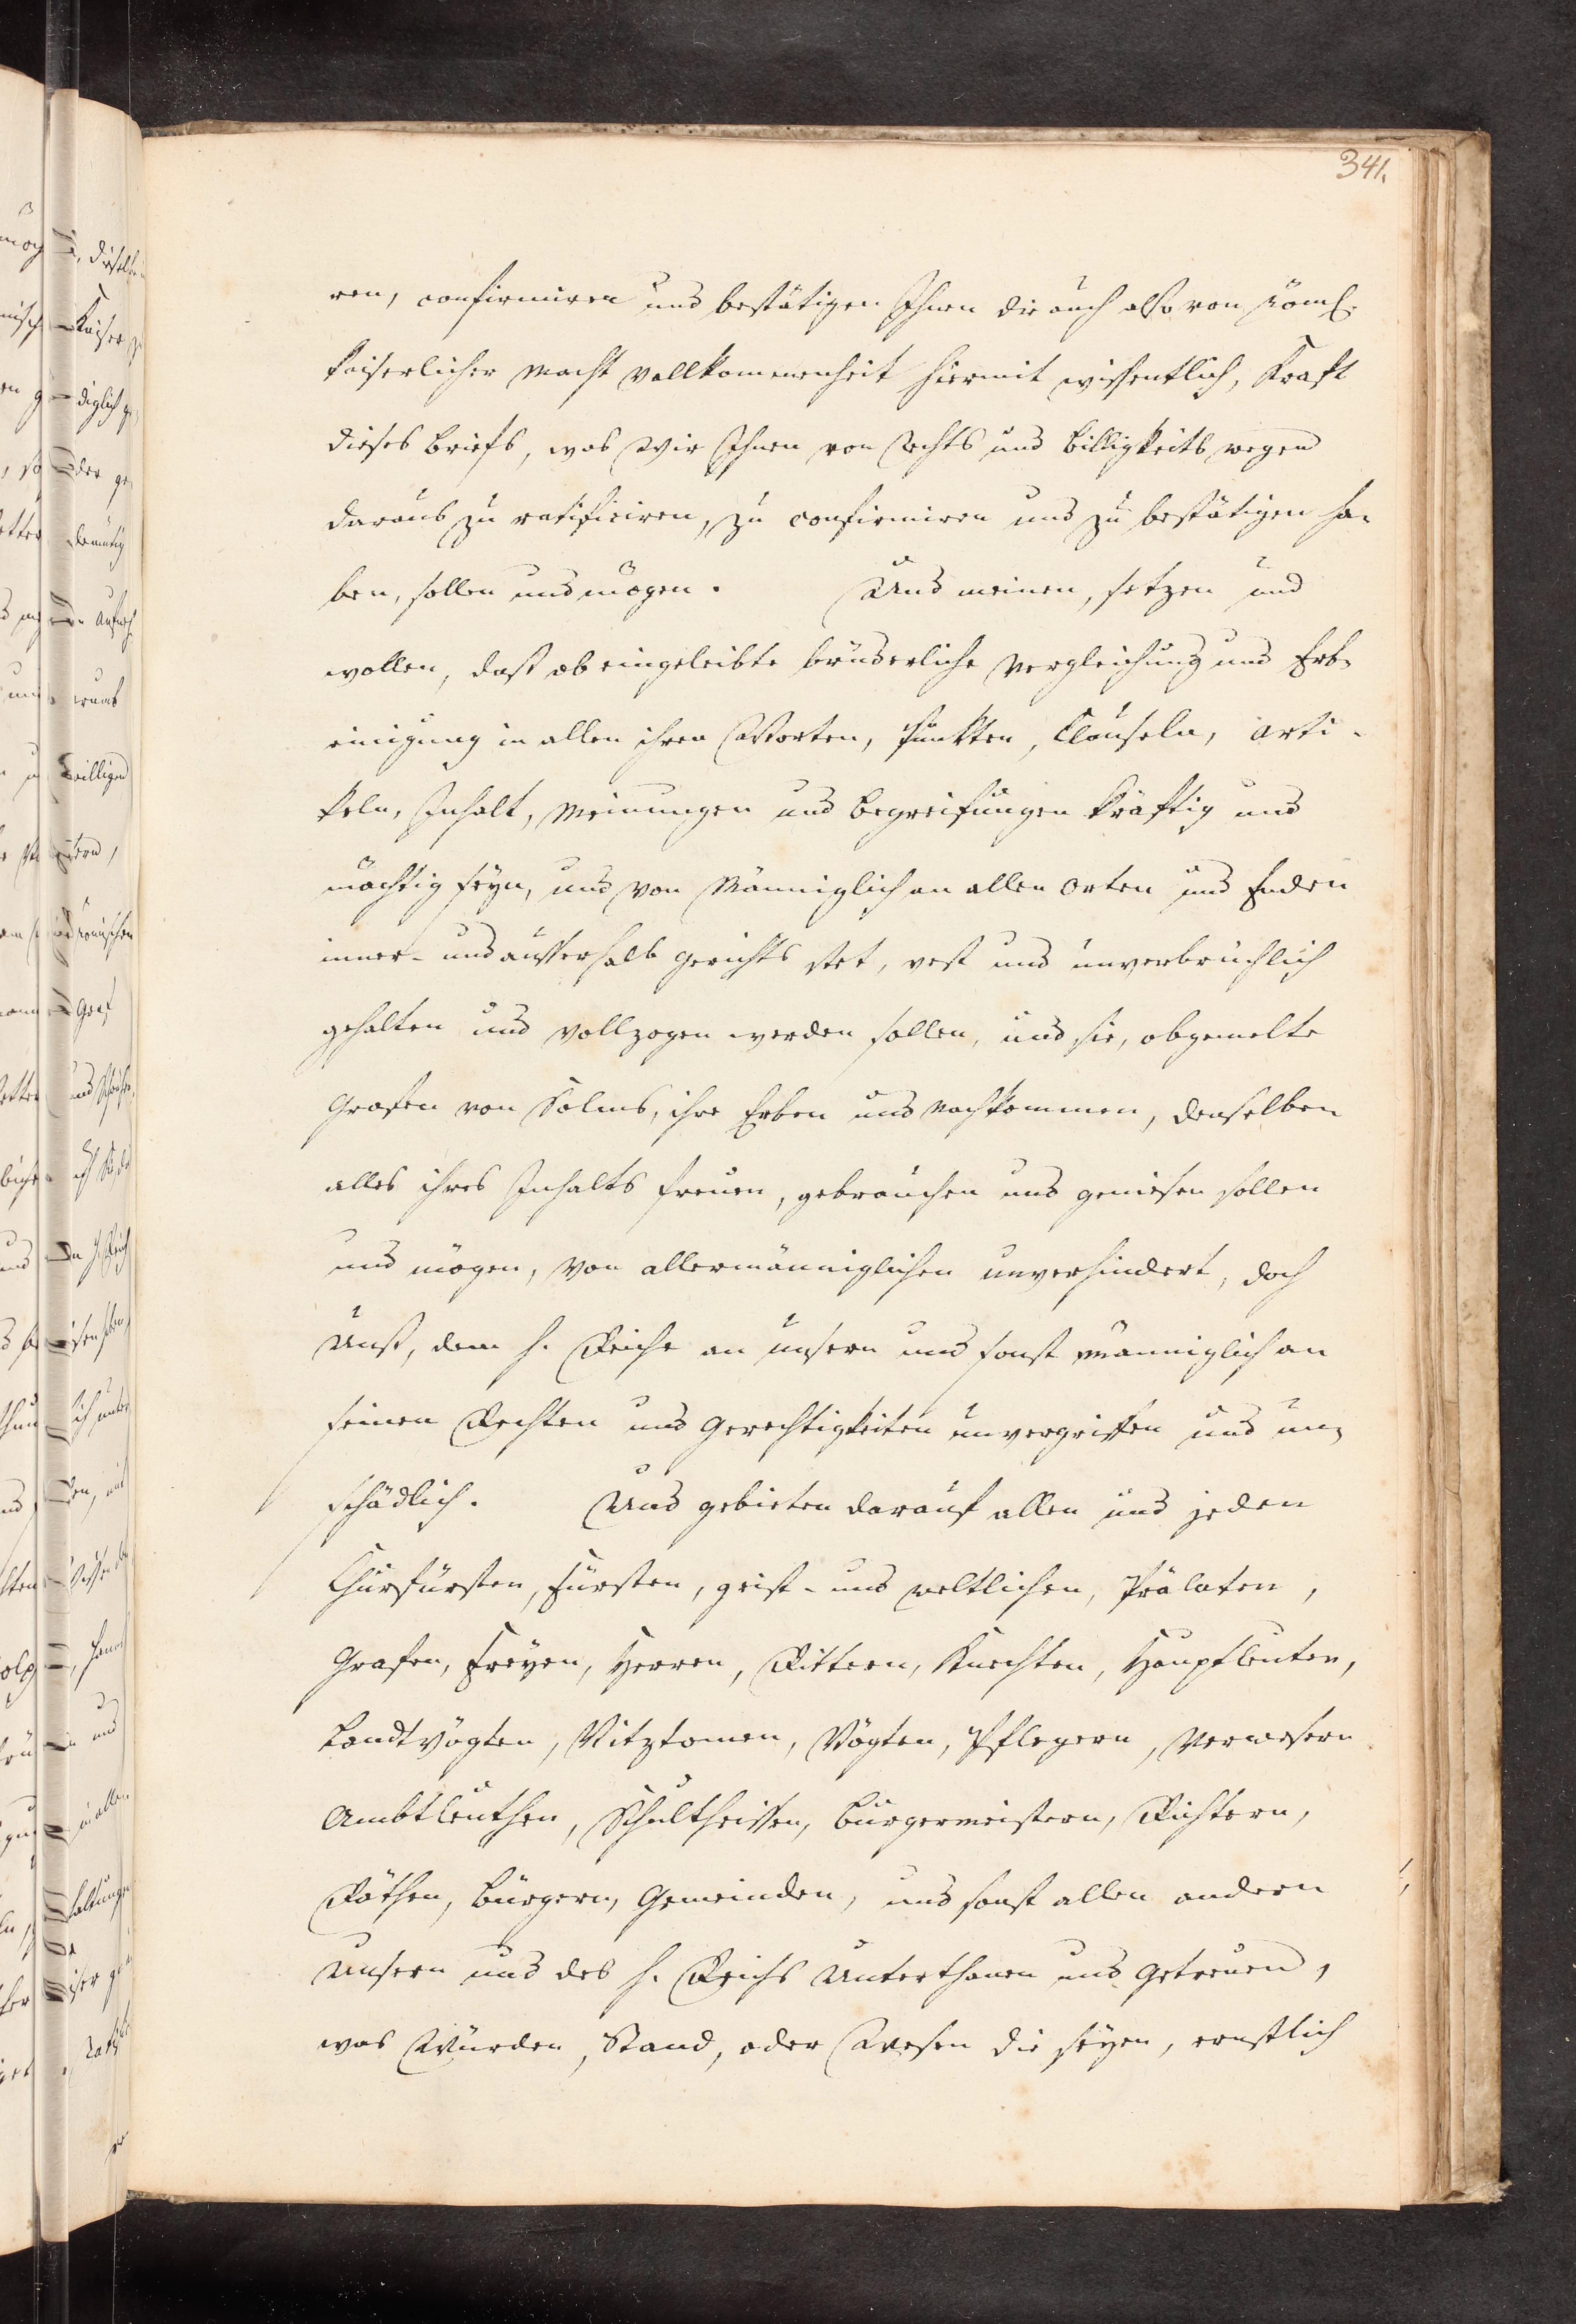 341.
ren, confirmiren und bestätigen Ihnen die auch also von Röml.
kaiserlicher Macht Vollkommenheit hiermit wissentlich, Kraft
dieses Briefs, was Wir Ihnen von Rechts und Billigkeits wegen
daraus zu ratificiren, zu confirmiren und zu bestätigen ha-
ben, sollen und mögen. Und meinen, setzen und
wollen, daß ob eingeleibte brüderliche Vergleichung und Erb-
einigung in allen ihren Worten, Punkten, Clausuln, Arti-
keln, Inhalt, Meinungen und Begreifungen kräftig und
mächtig seyn, und von Männiglich an allen Orten und Enden
inner- und ausserhalb Gerichts stet, vest und unverbrüchlich
gehalten und vollzogen werden sollen, und sie, obgemelte
Grafen von Solms, ihre Erben und Nachkommen, denselben
alles ihres Inhalts freuen, gebrauchen und geniesen sollen
und mögen, von allermänniglichen unverhindert, doch
Unß, dem h. Reiche an unsern und sonst Männiglich an
seinen Rechten und Gerechtigkeiten unvergriffen und un-
schädlich. Und gebieten darauf allen und jeden
Churfürsten, Fürsten, geist- und weltlichen, Prälaten,
Grafen, Freyen, Herren, Rittern, Knechten, Hauptleuten,
Landtvögten, Vitztomen, Vögten, Pflegern, Verwesern
Ambtleuthen, Schultheissen, Bürgermeistern, Richtern,
Räthen, Bürgern, Gemeinden, und sonst allen andern
Unsern und des h. Reichs Unterthanen und Getreuen,
was Würden, Stand, oder Wesen die seyen, ernstlich